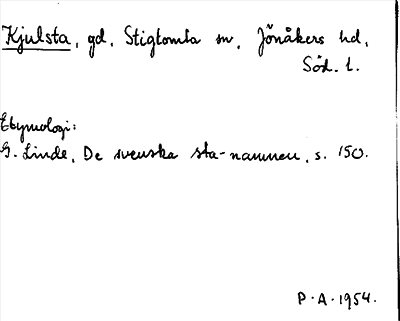 Kjulsta, gd, Stigtomta sn, Jönåkers hd,
Söd. l.
Etymologi:
G. Linde, De svenska sta-namnen, s. 150.
P.A. 1954.